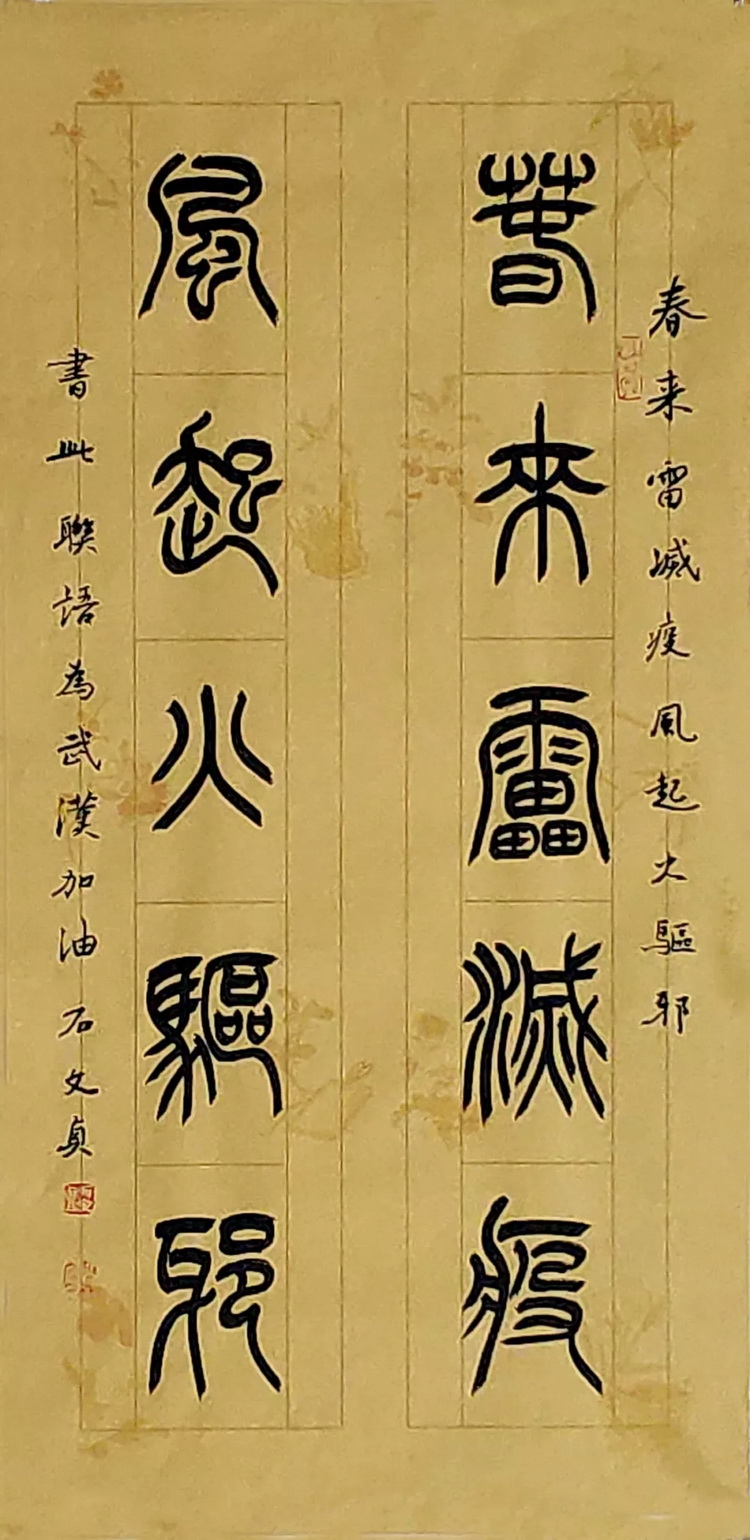 春来雷滅疫風起火驅邪
萅來靁滅疫
風起火驅邪
書此聯語為武漢加油石文貞